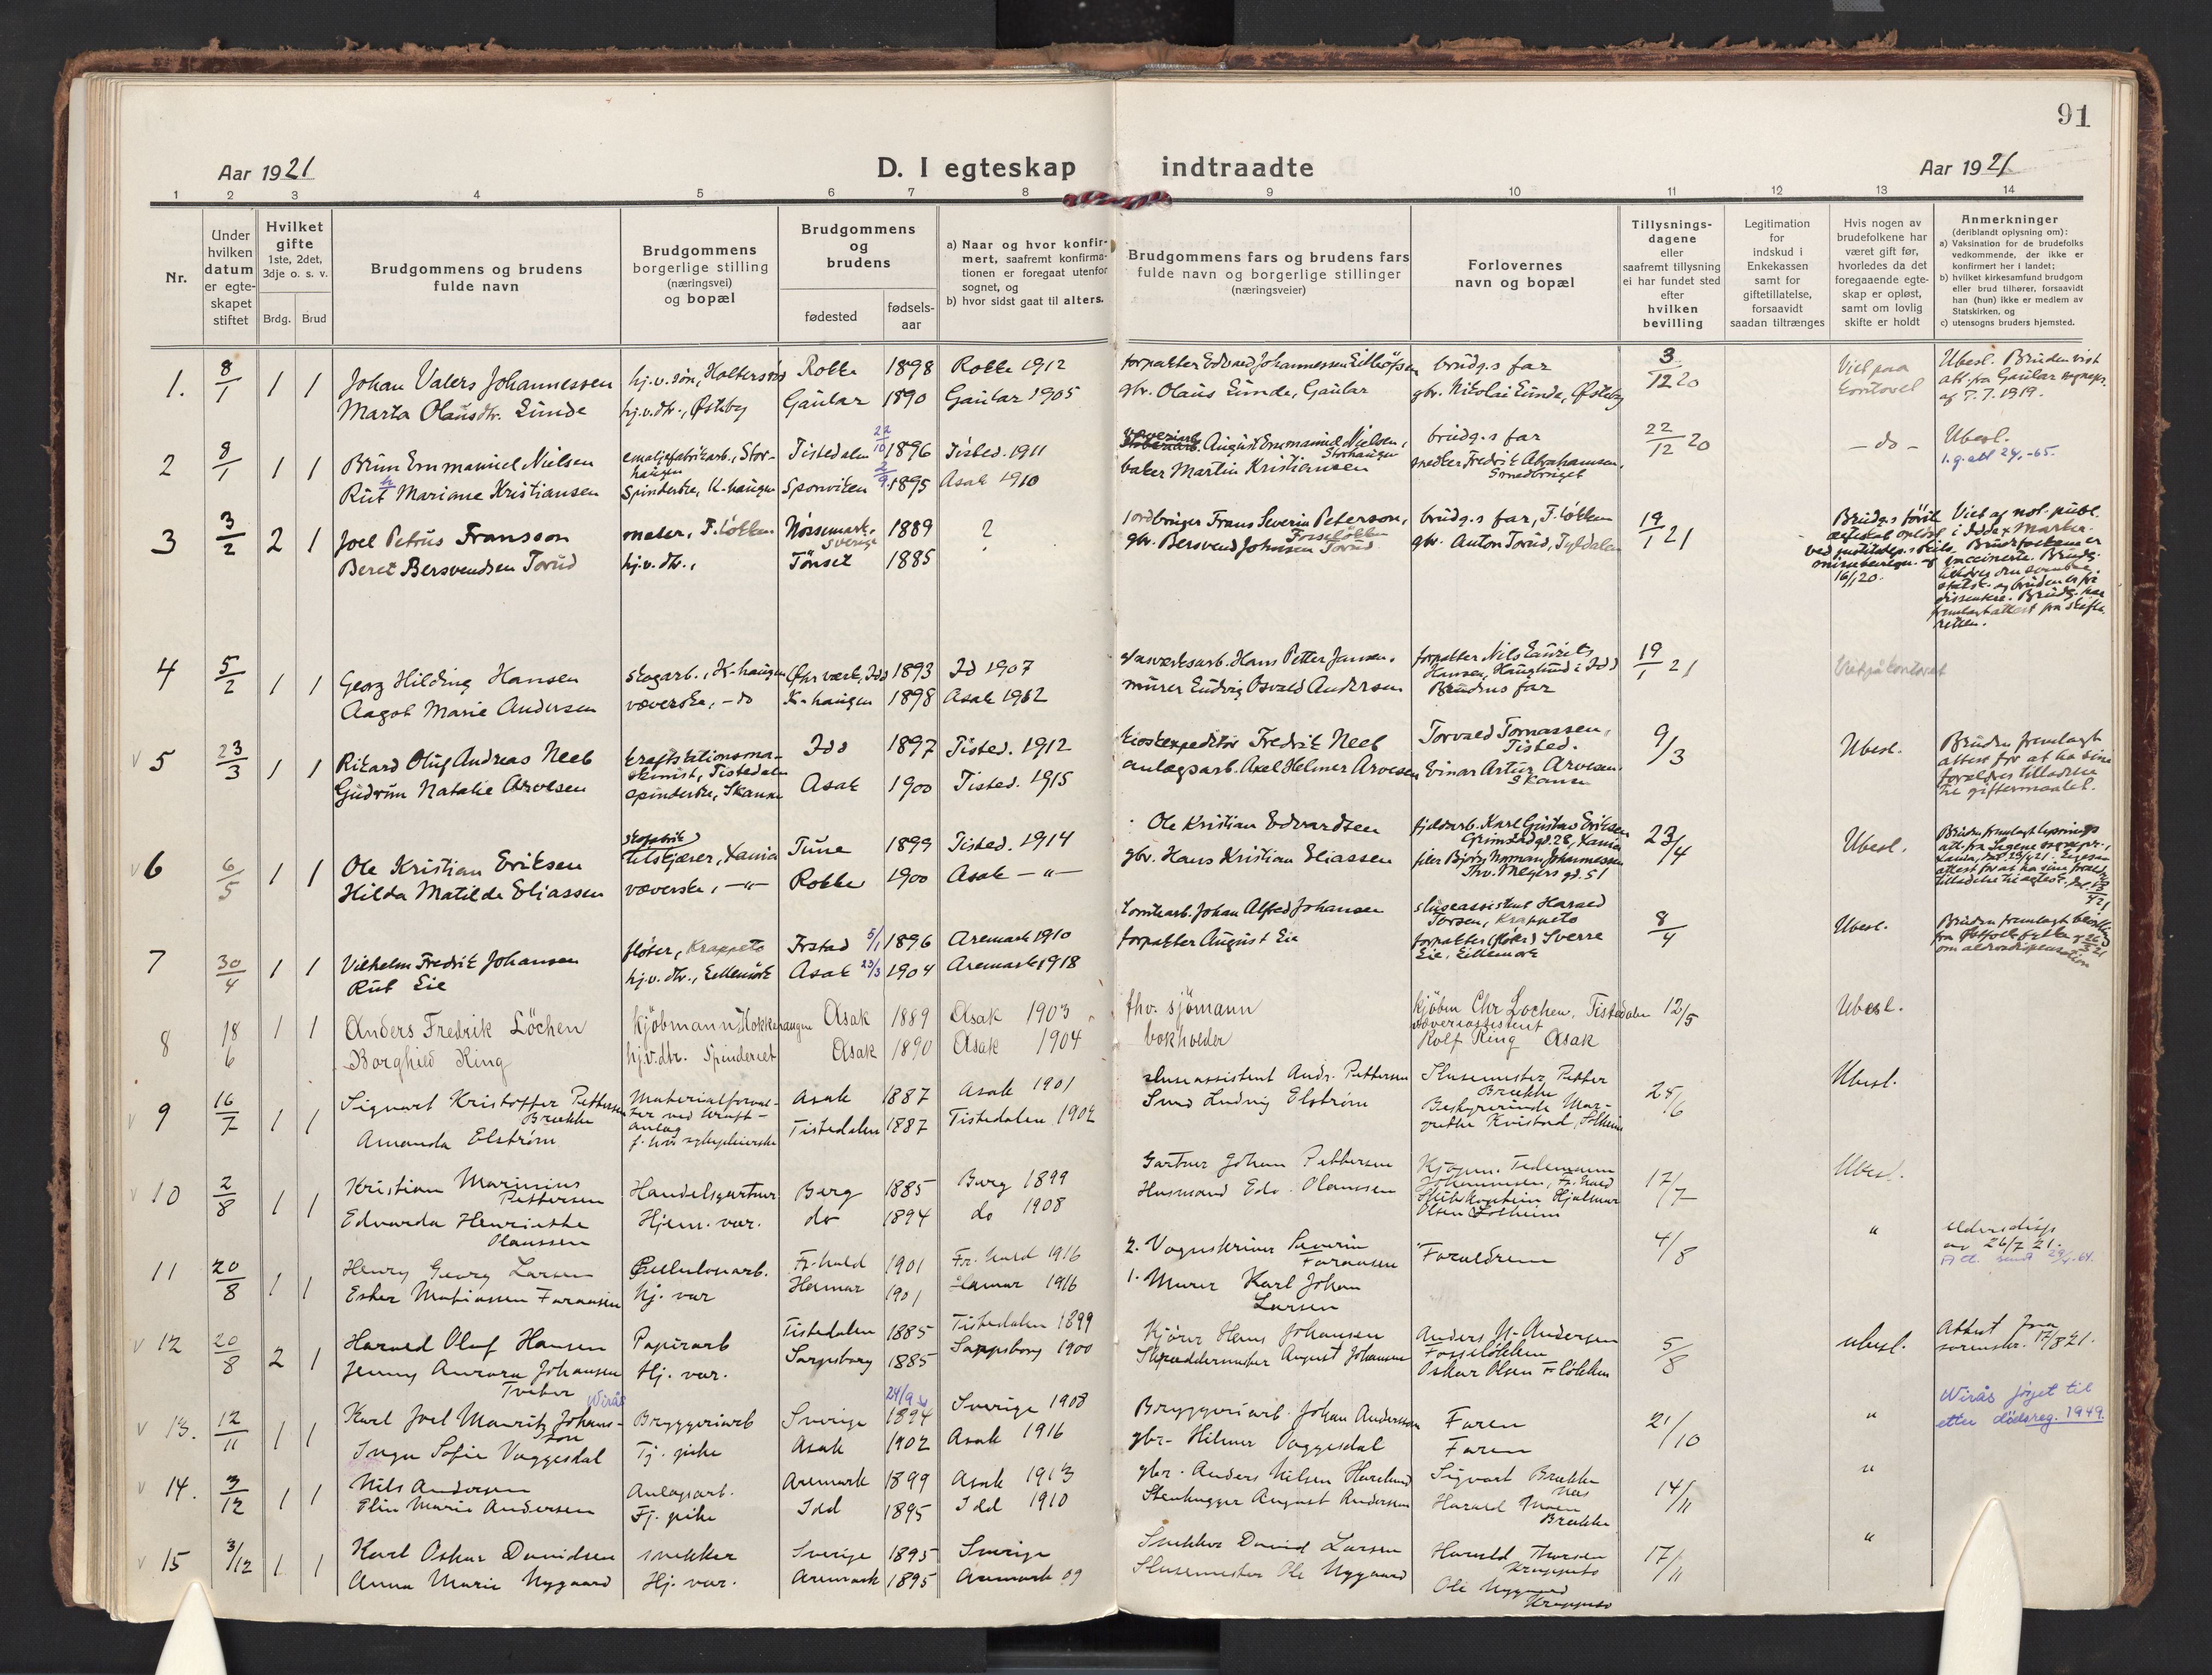 91
Aar 1921
D. I egteskap indtraadte
Aar 1921
1 2 3 4 5 6 7 8 9 10 11 12 13 14
Nr.
Under
hvilken
datum
er egte-
skapet
stiftet
Hvilket
gifte
1ste, 2det,
3dje o. s. v.
Brdg. Brud
Brudgommens og brudens
fulde navn
Brudgommens
borgerlige stilling
(næringsvei)
og bopæl
Brudgommens
og
brudens
fødested
fødsels-
aar
a) Naar og hvor konfir-
mert, saafremt konfirma-
tionen er foregaat utenfor
sognet, og
b) hvor sidst gaat til alters.
Brudgommens fars og brudens fars
fulde navn og borgerlige stillinger
(næringsveier)
Forlovernes
navn og bopæl
Tillysnings-
dagene
eller
saafremt tillysning
ei har fundet sted
efter
hvilken
bevilling
Legitimation
for
indskud i
Enkekassen
samt for
giftetillatelse,
forsaavidt
saadan tiltrænges
Hvis nogen av
brudefolkene har
været gift før,
hvorledes da det
foregaaende egte-
skap er opløst,
samt om lovlig
skifte er holdt
Anmerkninger
(deriblandt oplysning om):
a) Vaksination for de brudefolks
vedkommende, der ikke er
konfirmert her i landet;
b) hvilket kirkesamfund brudgom
eller brud tilhører, forsaavidt
han (hun) ikke er medlem av
Statskirken, og
c) utensogns bruders hjemsted.
1. 8/1 1 1 Johan Valers Johannessen hj.v. søn, Rokke 1898 Rokke 1912 forpakter Edvard Johannessen brudg.s far 3/12 20 Viet paa Ubesl. Bruden vist
Marta Olausdtr. Eunde hj.v. dtr., Østeby Gaular 1890 Gaular 1905 gbr. Olaus Eunde, Gaular gbr. Nikolai Eunde, Østeby kontoret att. fra Gaular
af 7.7.1919.
2 8/1 1 1 Brun Emmanuel Nielsen emaljefabrikarb., Stor- Tistedalen 22/10 1896 Tisted. 1911 August Emmanuel Nielsen, brudg.s far 22/12 20 - do - Ubesl.
haugen Storhaugen
Rut Mariane Kristiansen spinderske, K-haugen Sponviken 2/9 1895 Asak 1910 baker Martin Kristiansen smelter Fredrik Abrahamsen,
3 3/2 2 1 Joel Petrus Fransson maler, F. løkken Nössemark, Sverige 1889 ? jordbruger Frans Severin Peterson, brudg.s far, F. løkken 19/1 21
Fosseløkken
Beret Bersvendsen Torud hj.v. dtr., Tönset 1885 gbr. Bersvend Johnsen Torud gbr. Anton Torud, Tyldalen
16/1 20.
4 5/2 1 1 Georg Hilding Hansen skogarb., K-haugen 1893 Id 1907 Hans Petter Jansen, forpakter Nils Laurits 19/1 21 Viet på kontoret
Hansen, Hauglund i Idd
Aagot Marie Andersen væverske, - do K-haugen 1898 Asak 1912 murer Ludvig Osvald Andersen Brudens far
5 23/3 1 1 Rikard Oluf Andreas Neeb kraftstationsma- Idd 1897 Tisted. 1912 Fredrik Neeb Torvald Tomassen, 9/3 Ubesl. Bruden fremlagt
skinist, Tistedalen Tisted. attest for at ha sine
Gudrun Natalie Arvesen spinderske, Skansen Asak 1900 Tisted. 1915 anlægsarb. Axel Helmer Arvesen Einar Artur Arvesen forældres tilladelse
Skansen til giftermaalet.
6 6/5 1 1 Ole Kristian Eriksen tilskjærer, Xania Tune 1899 Tisted. 1914 Ole Kristian Edvardsen fjeldarb. Karl Gustav Eriksen 23/4 Ubesl.
Grimstadgd. 28, Xania
Hilda Matilde Eliassen væverske, - " - Rokke 1900 Asak - " - gbr. Hans Kristian Eliassen filer Bjørn Norman Johannessen
Thv. Meyers gd. 51
7 30/4 1 1 Vilhelm Fredrik Johansen fløter, Krappeto 5/1 1896 Aremark 1910 Johan Alfred Johansen sluseassistent Harald 8/4 Ubesl.
Torsen, Krappeto
Rut Eie hj.v. dtr., Asak 23/3 1904 Aremark 1918 forpakter August Eie forpakter (fløter) Sverre
Eie, om aldersdispensation
8 18/6 1 1 Anders Fredrik Löchen kjöbmann Asak 1889 Asak 1903 fhv. sjömann Kjöbm Chr Lochen, Tistedalen 12/5 Ubesl.
Borghild Ring hj.v. dtr. Spinderiet Asak 1890 Asak 1904 bokholder Rolf Ring Asak
9 16/7 1 1 Sigvart Kristoffer Pettersen Materialforval- Asak 1887 Asak 1901 sluseassistent Andr. Pettersen Slusemester Petter 24/6 Ubesl.
Brække ter ved kraft- Brække
anlæg
Amanda Elström Tistedalen 1887 Tistedalen 1902 Smed Ludvig Elström Bestyrerinde Mar-
grethe Kvistad, Solheim
10 2/8 1 1 Kristian Marinius Handelsgartner Berg 1885 Berg 1899 Gartner Johan Pettersen Kjøpm. Tidemann 17/7 Ubesl.
Pettersen
Edvarda Henriette Hjem. vær. do 1894 do 1908 Husmand Edv. Olaussen Hjalmar
Olaussen Olsen Solheim
11 20/8 1 1 Henry Georg Larsen Cellulosearb. Fr. hald 1901 Fr. hald 1916 2. Severin Forældrene 4/8 " Aldersdisp
av 26/7 21.
Ester Mathiassen Hj. vær Hamar 1901 Hamar 1916 1. Murer Karl Johan
Larsen
12 20/8 2 1 Harald Oluf Hansen Papirarb Tistedalen 1885 Tistedalen 1899 Kjörer Hans Johansen Anders M. Andersen 5/8 ubesl. Attest fra
Fosseløkken sorenskr. 17/8 21.
Jenny Aurora Johansen Hj. vær. Sarpsborg 1885 Sarpsborg 1900 Skræddermester August Johansen Oskar Olsen F. løkken
Tveter
13. 12/11 1 1 Karl Joel Mauritz Johans- Wirås Bryggeriarb Sverige 24/9 1894 Sverige 1908 Bryggeriarb. Johan Andersson Faren 21/10 " Wirås føyet til
son etter dödsreg. 1949.
Inga Sofie Vaggesdal Tj. pike Asak 1902 Asak 1916 gbr. Hilmer Vaggesdal Faren
14. 3/12 1 1 Nils Andersen Anlægsarb. Aremark 1899 Asak 1913 gbr. Anders Nilsen Sigvart Brække 14/11 "
Næs
Elin Marie Andersen Tj. pike Idd 1895 Idd 1910 Stenhugger August Andersen Harald Moen
Brække
15 3/12 1 1 Karl Oskar Davidsen snekker Sverige 1895 Sverige Snekker David Larsen Harald Thorsen 17/11 "
Krappeto
Anna Marie Nygaard Hj. vær. Aremark 1895 Aremark 09 Slusemester Ole Nygaard Ole Nygaard
Krappeto